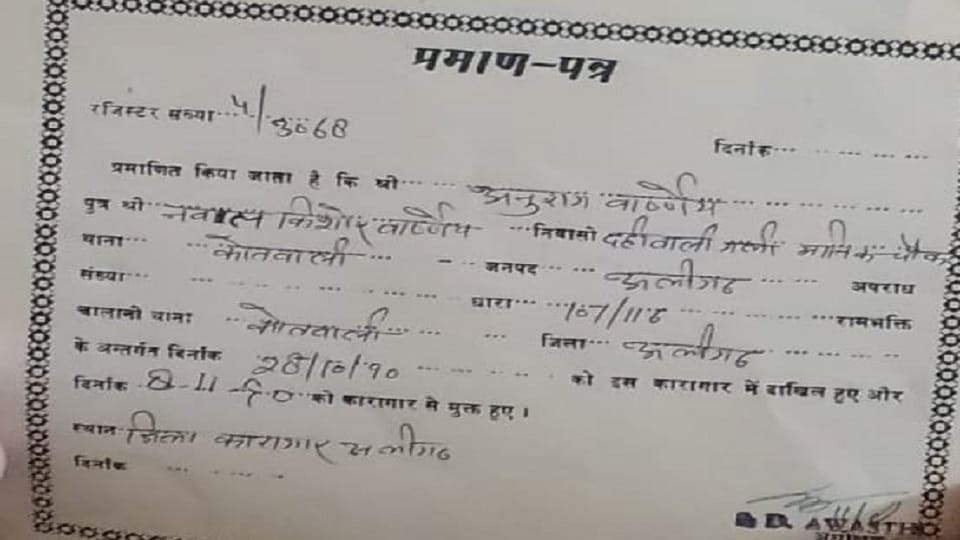 प्रमाण-पत्र
रजिस्टर संख्या 4/
दिनांक
प्रमाणित किया जाता है कि श्री अनुराग वार्ष्णेय
पुत्र श्री नवल किशोर वार्ष्णेय निवासी दहीवाली गली मानिक चौक
थाना कोतवाली जनपद अलीगढ अपराध
संख्या धारा 107/116 रामभक्ति
चालानी थाना कोतवाली जिला अलीगढ
के अन्तर्गत दिनांक 28/10/90 को इस कारागार में दाखिल हुए और
दिनांक 8-11-90 को कारागार से मुक्त हुए।
स्थान जिला कारागार अलीगढ
दिनांक
AWASTHI